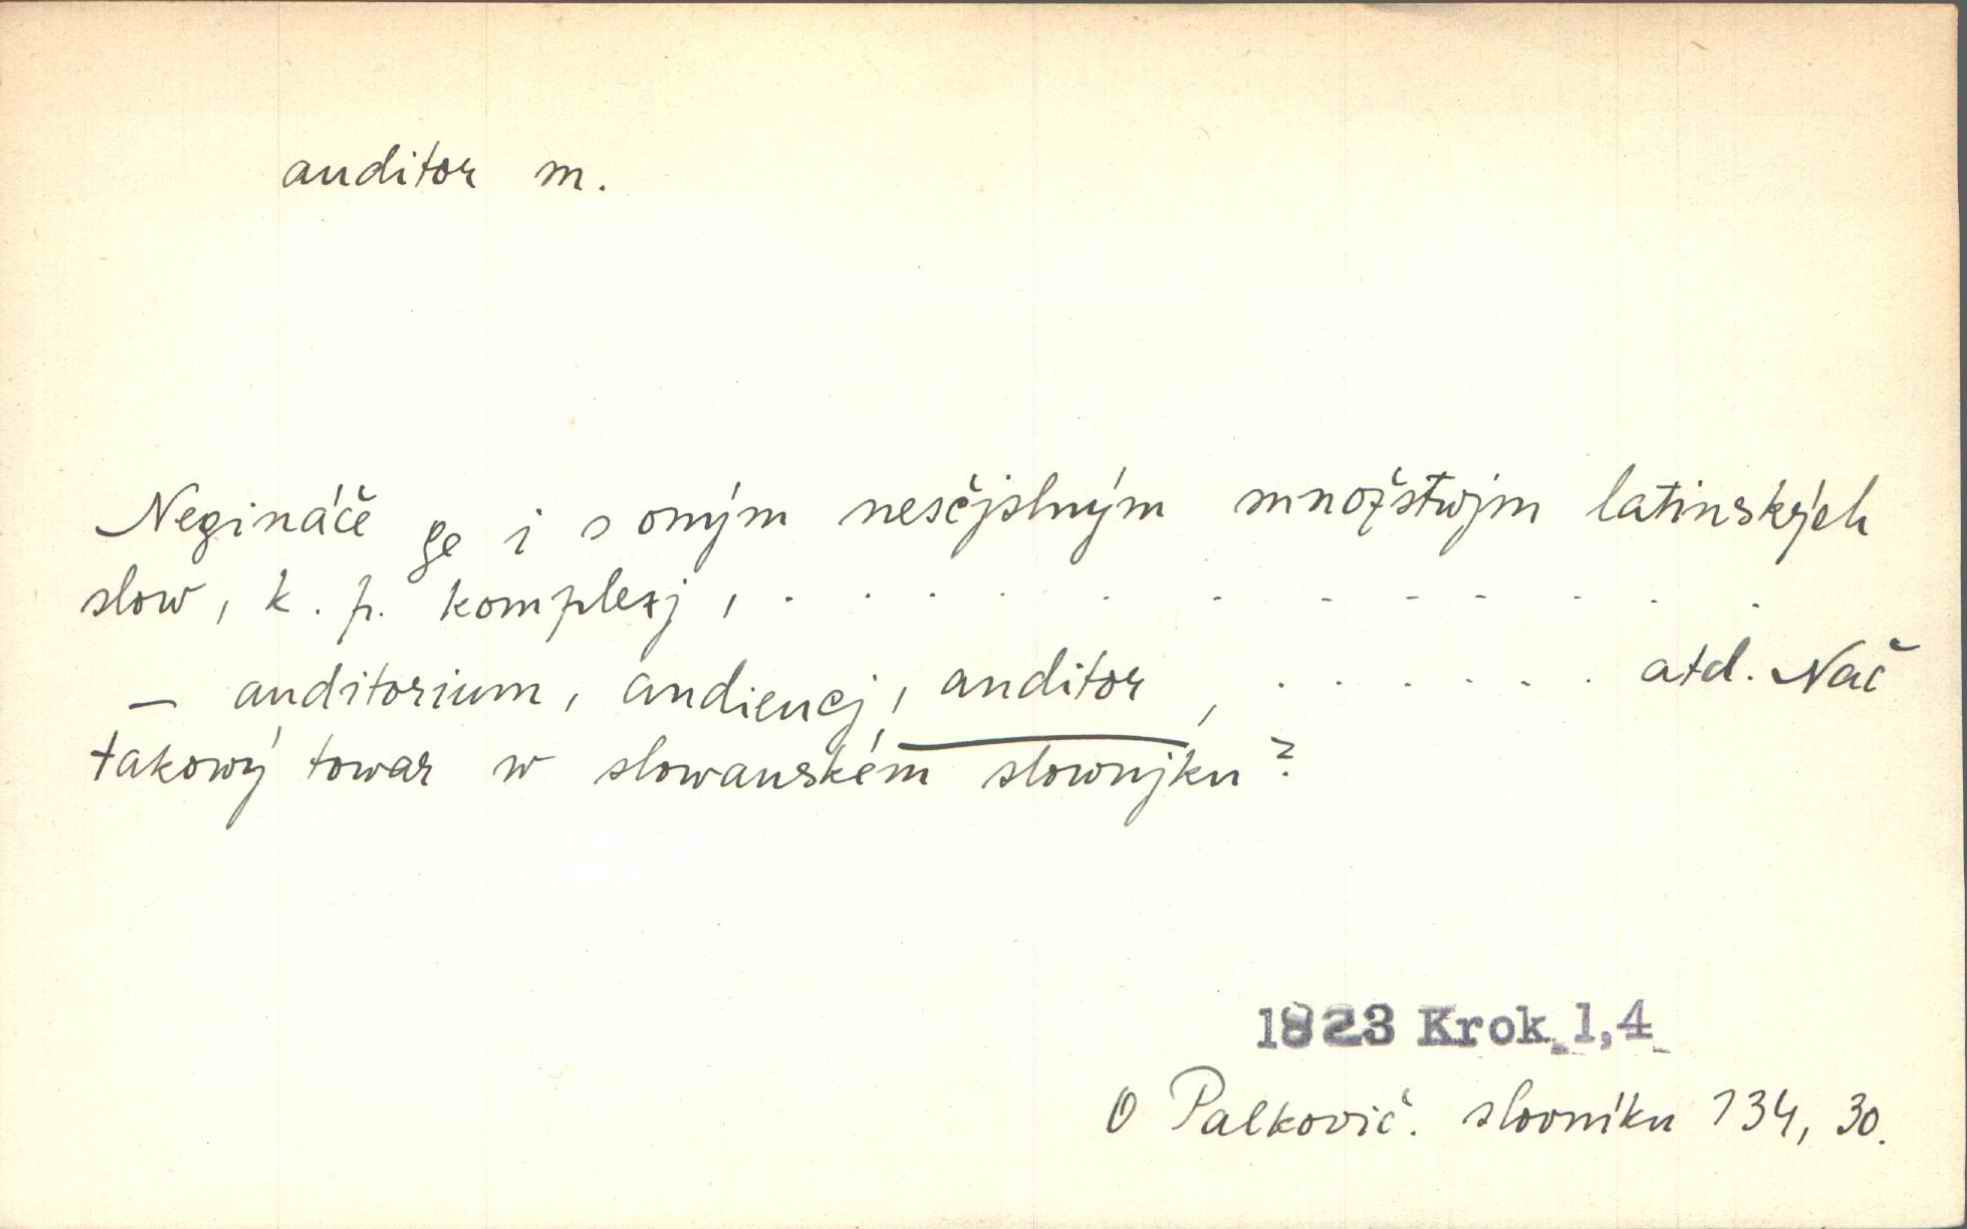 auditor m.
Negináče ge i s oným nesčjslným množstwjm latinských
slow, k. p. komplexj, . . . . . . . . . . . .
— auditorium, audiencj, auditor, . . . . . . . atd. Nač
takowý towar w slowanském slownjku?
1823 Krok 1,4
O Palkovič. slovníku 134, 30.